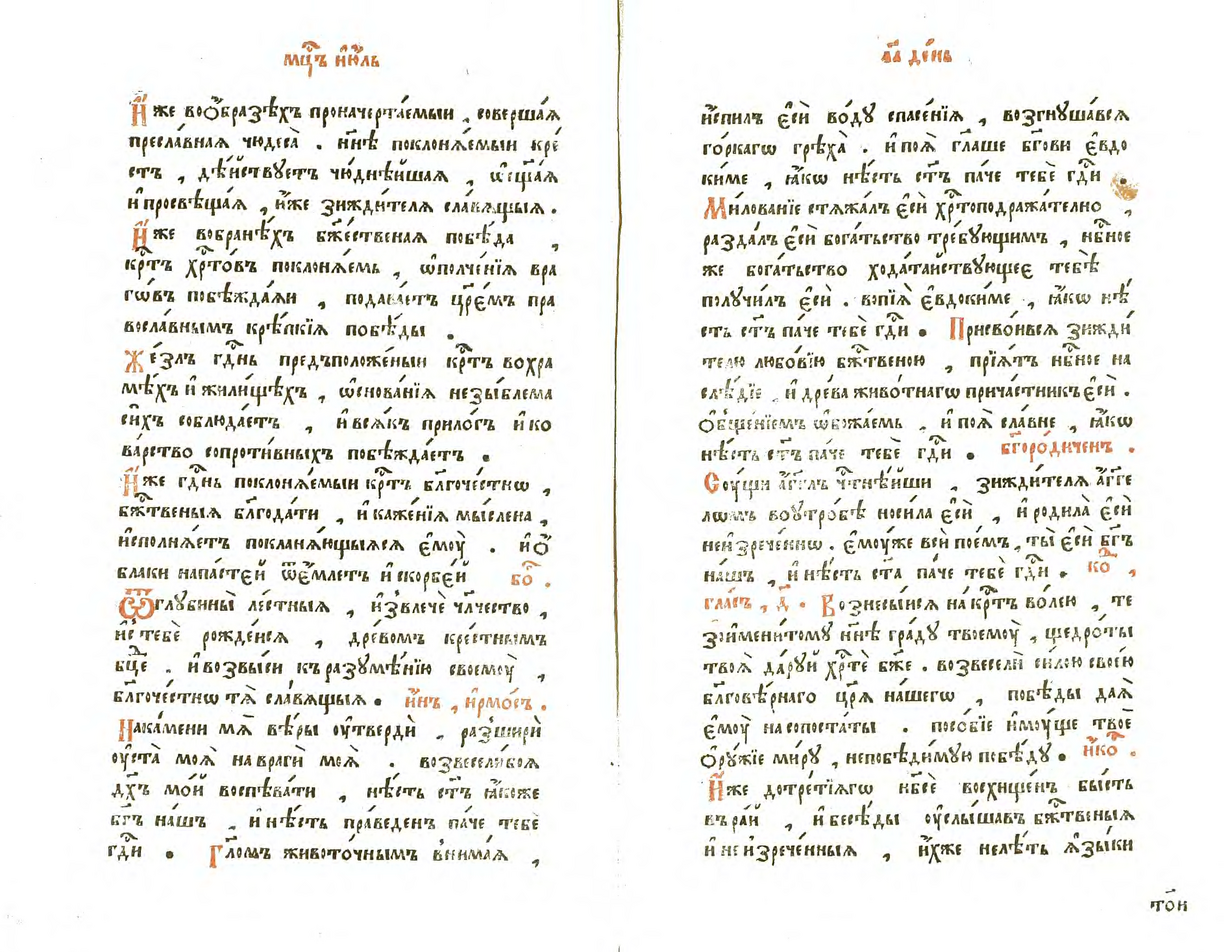 мц҃ъ ию́ль
И҆́же воѻ҆́бразѣхъ проначерта́емыи , соверша́ѧ
пресла́внаѧ чюдеса̀ . нн҃ѣ поклонѧ́емыи кре́
стъ , дѣ́йствуетъ чю́днѣйшаѧ , ѡ҆сщ҃а́ѧ
и҆ просвѣща́ѧ , и҆̀же зижди́телѧ сла́вѧщыѧ .
И҆́же вобране́хъ бж҃ественаѧ побѣ́да ,
крⷭ҇тъ хрⷭ҇то́въ поклонѧ́емь , ѡ҆полче́нїѧ вра
гѡ́въ побѣжда́ѧи , подава́етъ цр҃є́мъ пра
восла́внымъ крѣ́пкїѧ побѣ́ды .
Же́злъ гдⷭ҇нь предъположе́ныи крⷭ҇тъ вохра
мѣ́хъ и҆ жили́щѣхъ , ѡ҆снова́нїѧ незы́блема
си́хъ соблюда́етъ , и҆ всѧ́къ прило́гъ и҆ ко
ва́рство сопроти́вныхъ побѣжда́етъ .
И҆́же гдⷭ҇нь поклонѧ́емыи крⷭ҇тъ бл҃гоче́стнѡ ,
бж҃твеныѧ бл҃года́ти , и҆ каже́нїѧ мы́слена ,
и҆сполнѧ́етъ покланѧ́ющыѧсѧ є҆моу̀ . и҆ ѻ҆́
блаки напа́стєй ѿе́млетъ и҆ скорбє́й бо҃ .
Ѿ глубины̀ ле́стныѧ , и҆звлечѐ чл҃чество ,
и҆с тебѐ рожде́нсѧ , дре́вомъ кре́стнымъ
бц҃е . и҆ возвы́си къ разумѣ́нїю своемоу̀ ,
бл҃гоче́стнѡ тѧ̀ сла́вѧщыѧ . и҆́нъ , и҆рмо́съ .
На ка́мени мѧ̀ вѣ́ры оу҆твердѝ . разширѝ
оу҆ста̀ моѧ̀ на врагѝ моѧ̀ . возвесели́босѧ
дх҃ъ мо́й воспѣва́ти , нѣ́сть ст҃ъ ꙗ҆́коже
бг҃ъ на́шъ . и҆ нѣ́сть пра́веденъ па́че тебѐ
гдⷭ҇и . Гл҃омъ живото́чнымъ внима́ѧ ,
л҃а де́нь
и҆спи́лъ є҆сѝ во́ду спасе́нїѧ , возгнуша́всѧ
го́ркагѡ грѣха̀ . и҆ поѧ̀ гл҃аше бг҃ови є҆вдо
киме , ꙗ҆́кѡ нѣ́сть ст҃ъ па́че тебѐ гдⷭ҇и .
Милова́нїе стѧжа́лъ є҆сѝ хрⷭ҇топодража́телно ,
разда́лъ є҆сѝ бога́тьство тре́бующимъ , нб҃ное
же бога́тьство хода́тайствующеє тебѣ̀
получи́лъ є҆сѝ . вопїѧ̀ є҆вдоки́ме , ꙗ҆́кѡ нѣ́
сть ст҃ъ па́че тебѐ гдⷭ҇и . Присво́ивьсѧ зижди́
телю любо́вїю бжⷭ҇твеною , прїѧ́тъ нб҃ное на
слѣ́дїе , и҆ дре́ва живо́тнагѡ прича́стникъ є҆сѝ .
ѻ҆бще́нїемъ ѡ҆божа́емь . и҆ поѧ̀ сла́вне , ꙗ҆́кѡ
нѣ́сть ст҃ъ па́че тебѐ гдⷭ҇и . бг҃оро́диченъ .
Соу́щи а҆́гг҃лъ чⷭ҇тнѣ́йши , зижди́телѧ а҆́гг҃е
лѡмъ воутро́бѣ носи́ла є҆сѝ , и҆ родила̀ є҆сѝ
неи҆зрече́ннѡ . є҆моу́же всѝ пое́мъ , ты̀ є҆сѝ бг҃ъ
на́шъ , и҆ нѣ́сть ст҃а па́че тебѐ гдⷭ҇и . ко҃ ,
гла́съ , д҃ . Вознесы́исѧ на крⷭ҇тъ во́лею , те
зои҆мени́тому нн҃ѣ гра́ду твоемоу̀ , щедро́ты
твоѧ̀ да́руй хрⷭ҇тѐ бж҃е . возвеселѝ си́лою свое́ю
бл҃говѣ́рнаго цр҃ѧ̀ на́шегѡ , побѣ́ды даѧ̀
є҆моу̀ на сопоста́ты . посо́бїе и҆моу́ще твоѐ
ѻ҆ру́жїе ми́ру , непобѣди́мую побѣ́ду . и҆ко҃ .
И҆́же до тре́тїѧгѡ нб҃сѐ восхище́нъ бы́сть
въ ра́й , и҆ бесѣ́ды оу҆слы́шавъ бжⷭ҇твеныѧ
и҆ неи҆зрече́нныѧ , и҆́хже нелѣ́ть ѧ҆зы́ки
то́и